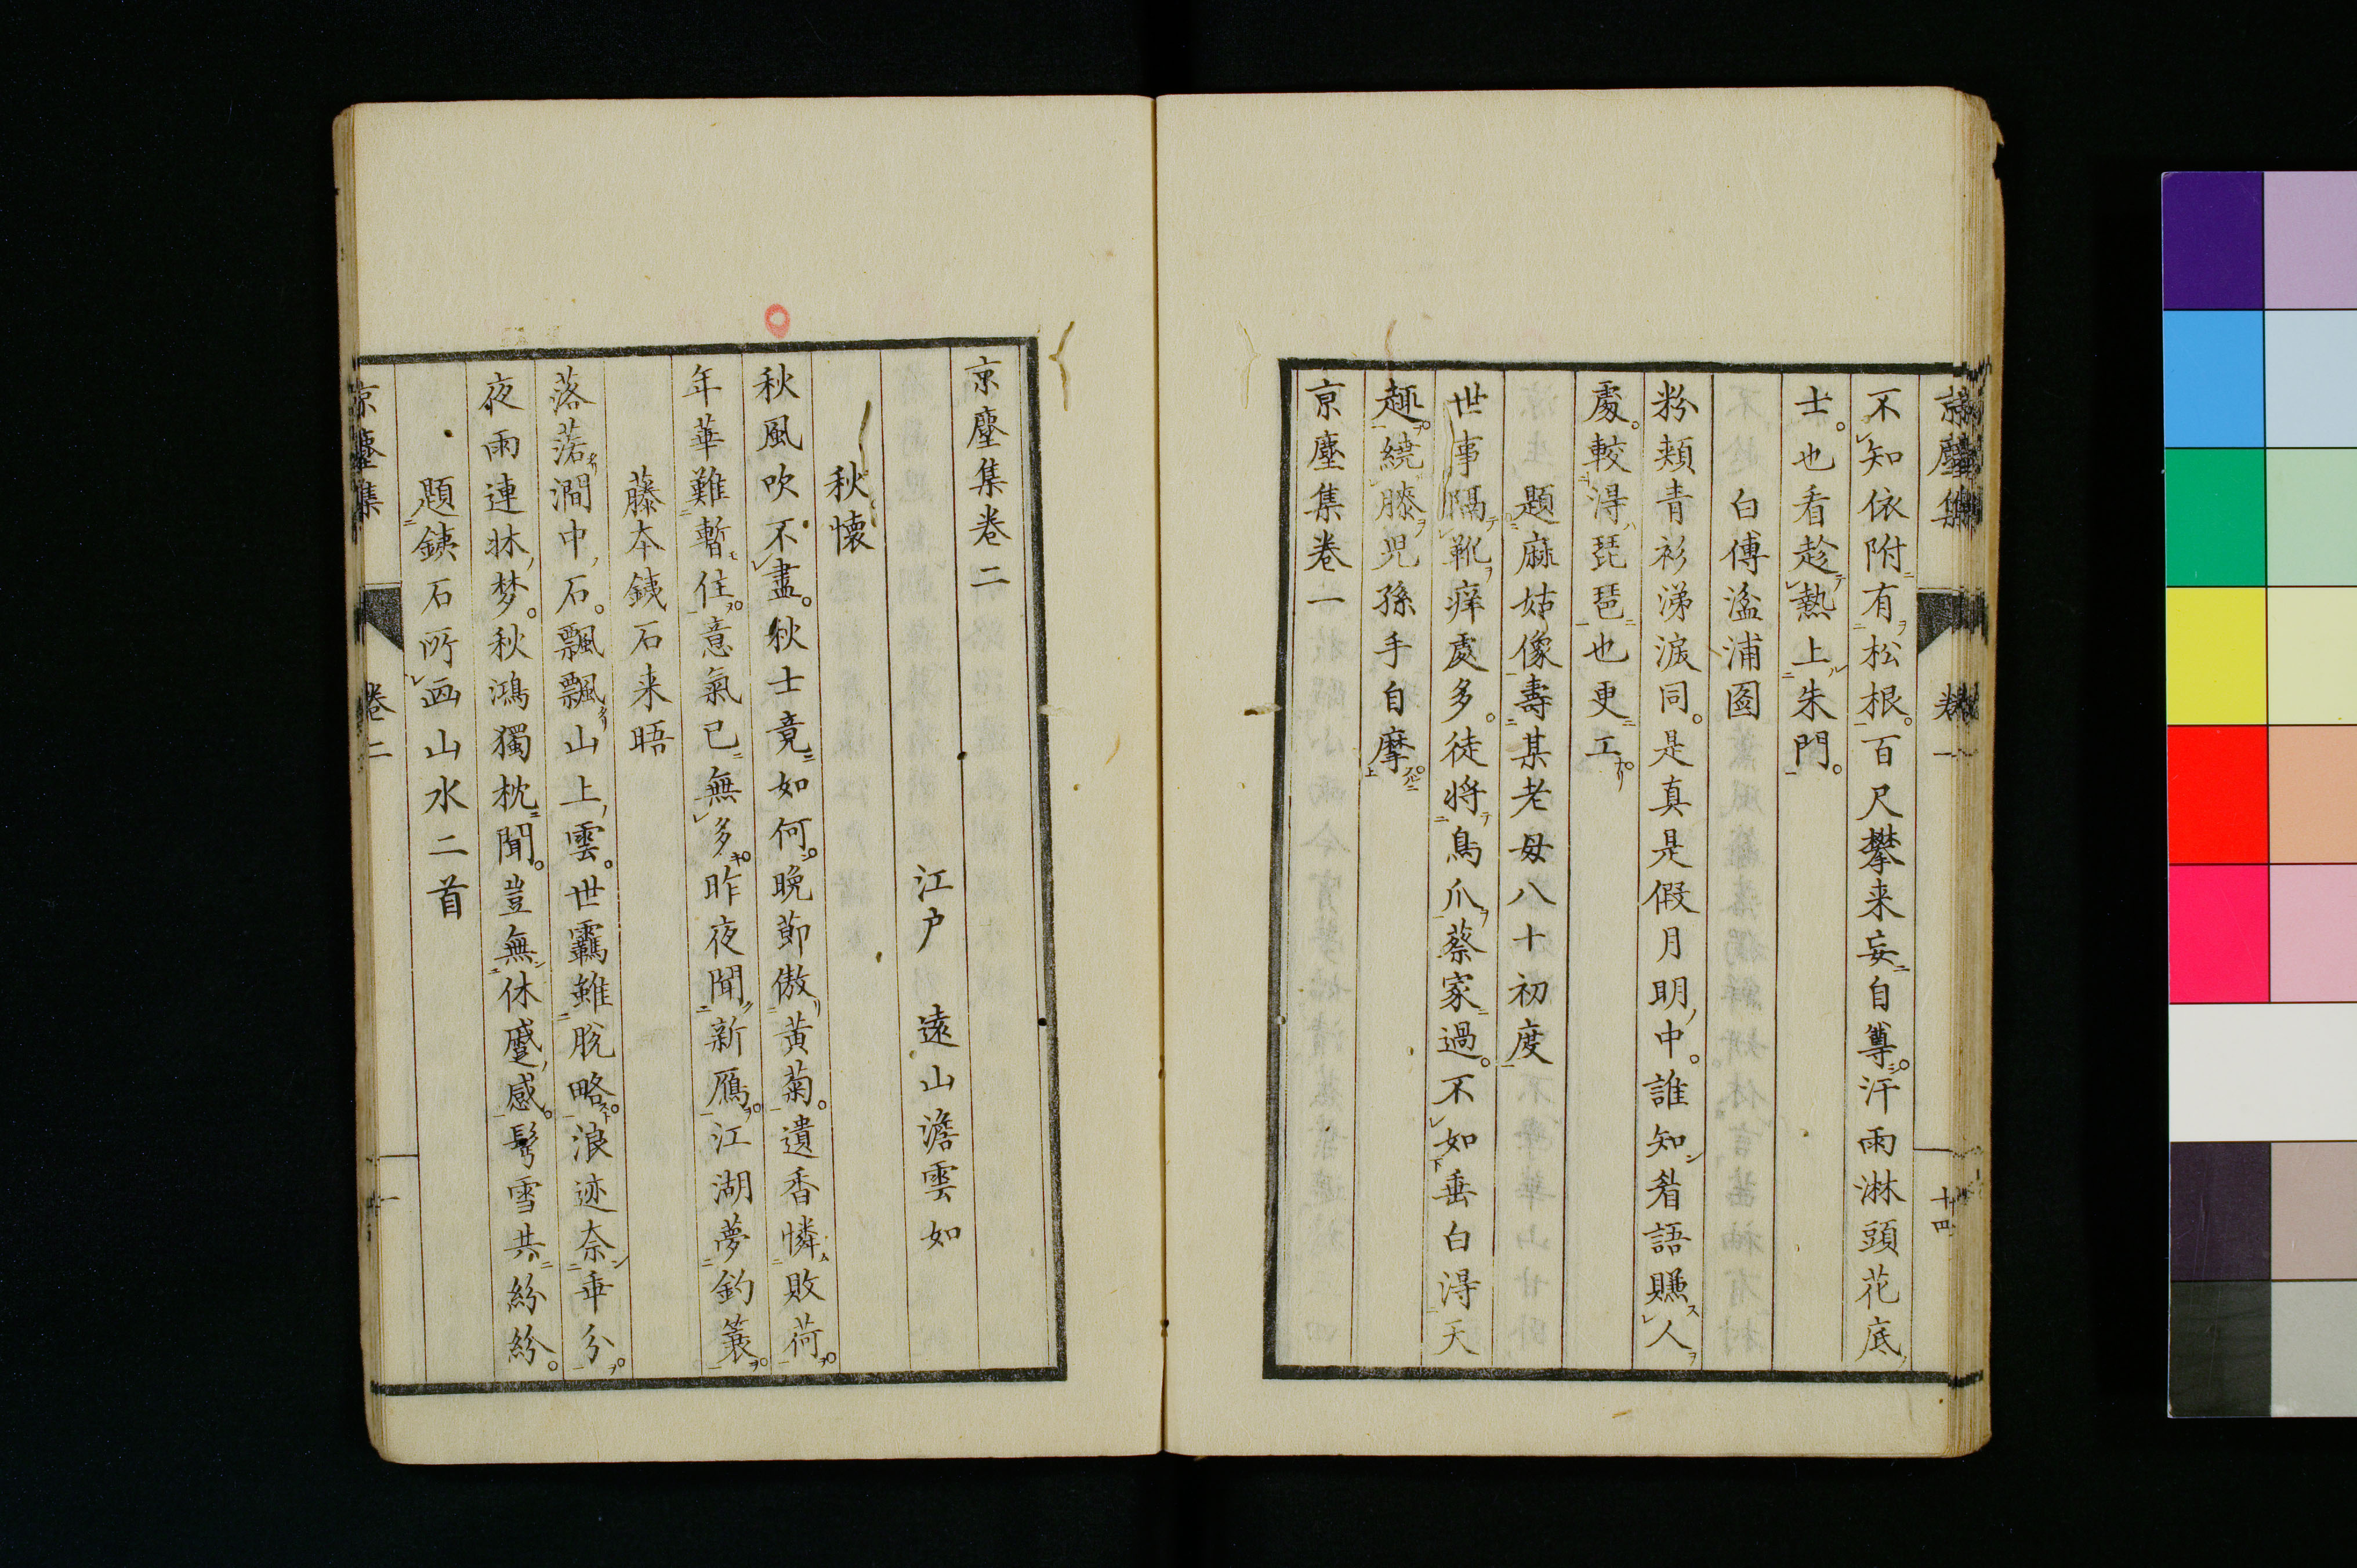 京塵集 卷一 十四
不知依附有松根百尺攀来妄自尊汗雨淋頭花底
士也看趁熱上朱門
白傅湓浦圖
粉頬青衫涕淚同是真是假月明中誰知着語賺人
處較淂琵琶也更工
題麻姑像壽某老母八十初度
世事隔靴痒處多徒将鳥爪蔡家過不如垂白淂天
趣繞膝児孫手自摩
京塵集卷一
京塵集卷二
江户 遠山澹雲如
秋懷
秋風吹不盡秋士竟如何晩莭傲黃菊遺香憐敗荷
年華難暫住意氣已無多昨夜聞新鴈江湖夢釣蓑
藤本鐵石来晤
落落澗中石飄飄山上雲世羈雖脫略浪迹奈乖分
夜雨連牀梦秋鴻獨枕聞豈無休蹙感鬂雪共紛紛
題鐵石所画山水二首
京塵集 卷二 一